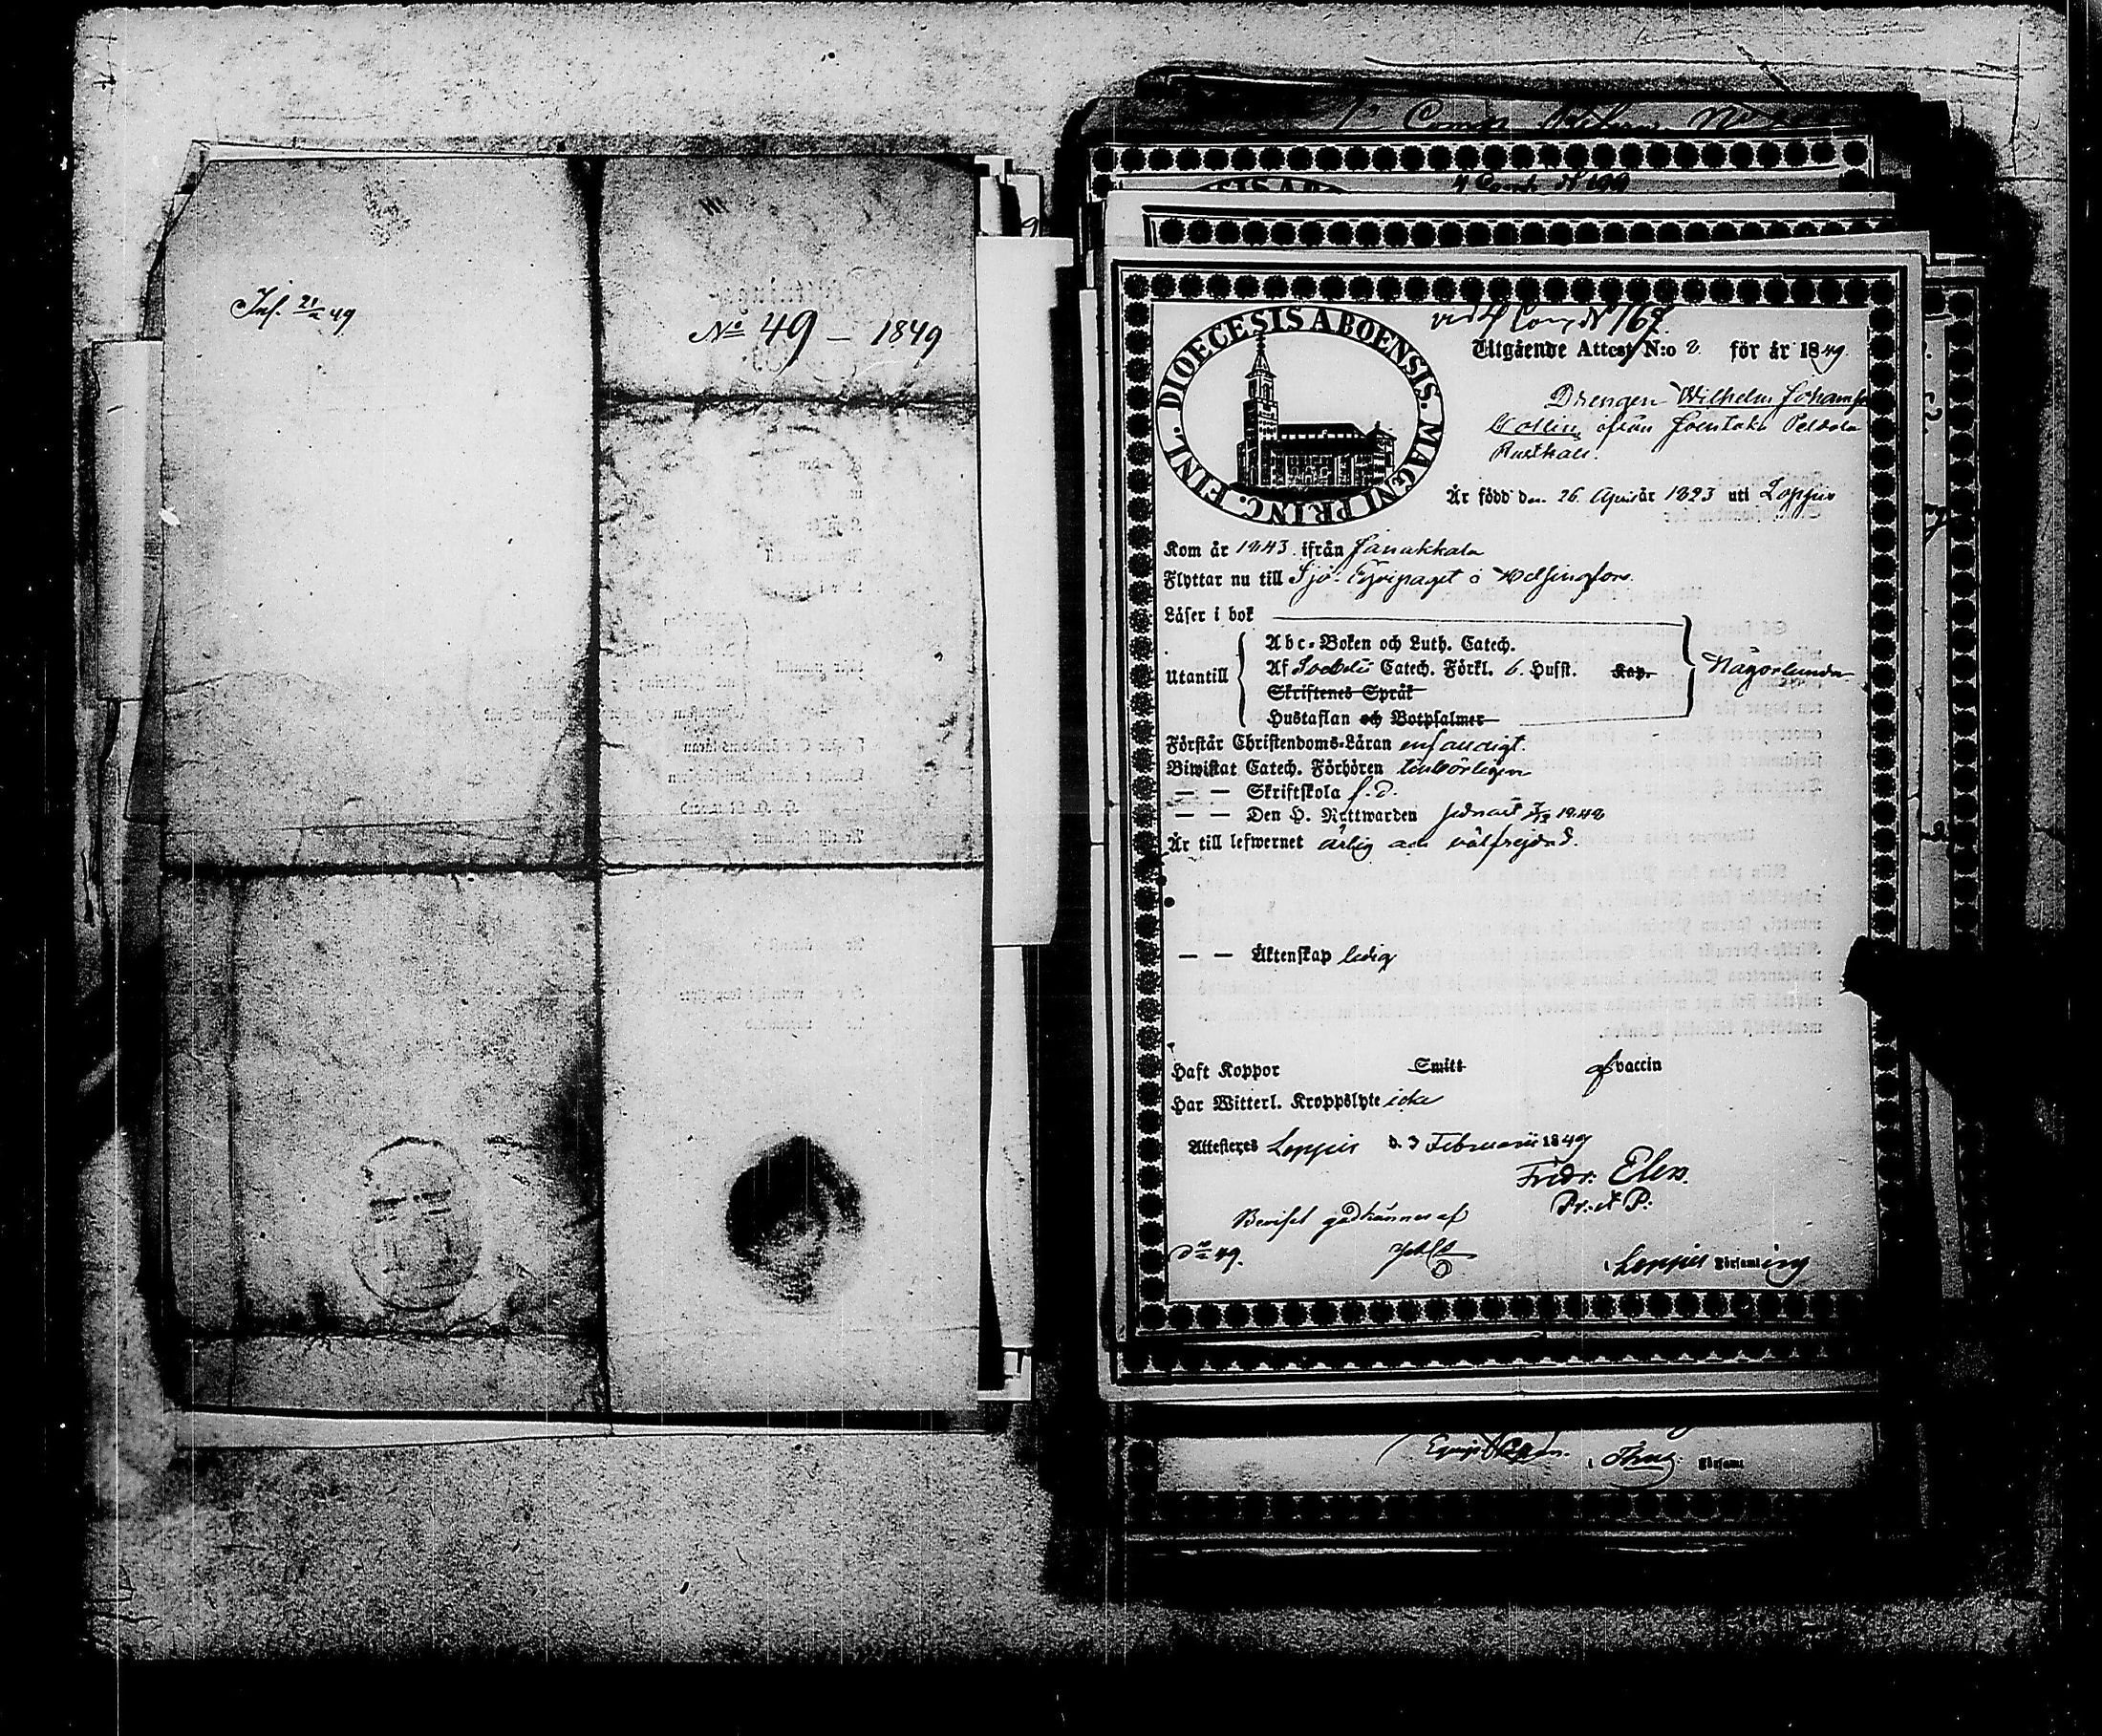 Inf. 21/2 49
No 49 — 1849
4 Comp. N 199
DIOECESIS ABOENSIS. MAGNI PRINC. FINL.
vid 4 Comp N 167.
Utgående Attest N:o 2. för år 1849.
Drengen Wilhelm Johansson
Collin, ifrån
Rusthåll.
Är född den 26 April år 1823 uti Loppis
Kom år 1843. ifrån Janakkala
Flyttar nu till Sjö-Eqvipaget i Helsingfors.
Läser i bok
Utantill
Abc-Boken och Luth. Catech.
Af Svebelii Catech. Förkl. 6. Hufst. Kap.
Skriftenes Språk
Hustaflan och Botpsalmer
Någorlunda
Förstår Christendoms-Läran enfaldigt.
Biwistat Catech. Förhören tillbörligen
— — Skriftskola f. d.
— — Den H. Nattwarden sednast 1848
Är till lefwernet ärlig och välfrejdad.
— — Äktenskap ledig
Haft Koppor Smitt af vaccin
Har Witterl. Kroppslyte icke
Attesteres Loppis d. 3 Februarii 1849
Fredr. Elen.
Pr. et P.
Beviset godkännes af
i Loppis Församling
i Församl